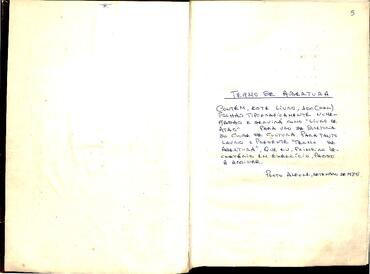 5
TERMO DE ABERTURA
CONTÉM, ESTE LIVRO, 200 (CEM)
FOLHAS TIPOGRAFICAMENTE NUME-
RADAS E SERVIRÁ COMO "LIVRO DE
ATAS" PARA USO DA DIRETORIA
DO CLUBE DE CULTURA. PARA TANTO
LAVRO O PRESENTE "TERMO DE
ABERTURA", QUE EU, PRIMEIRO SE-
CRETÁRIO EM EXERCÍCIO, PASSO
A ASSINAR.
PORTO ALEGRE, SETEMBRO DE